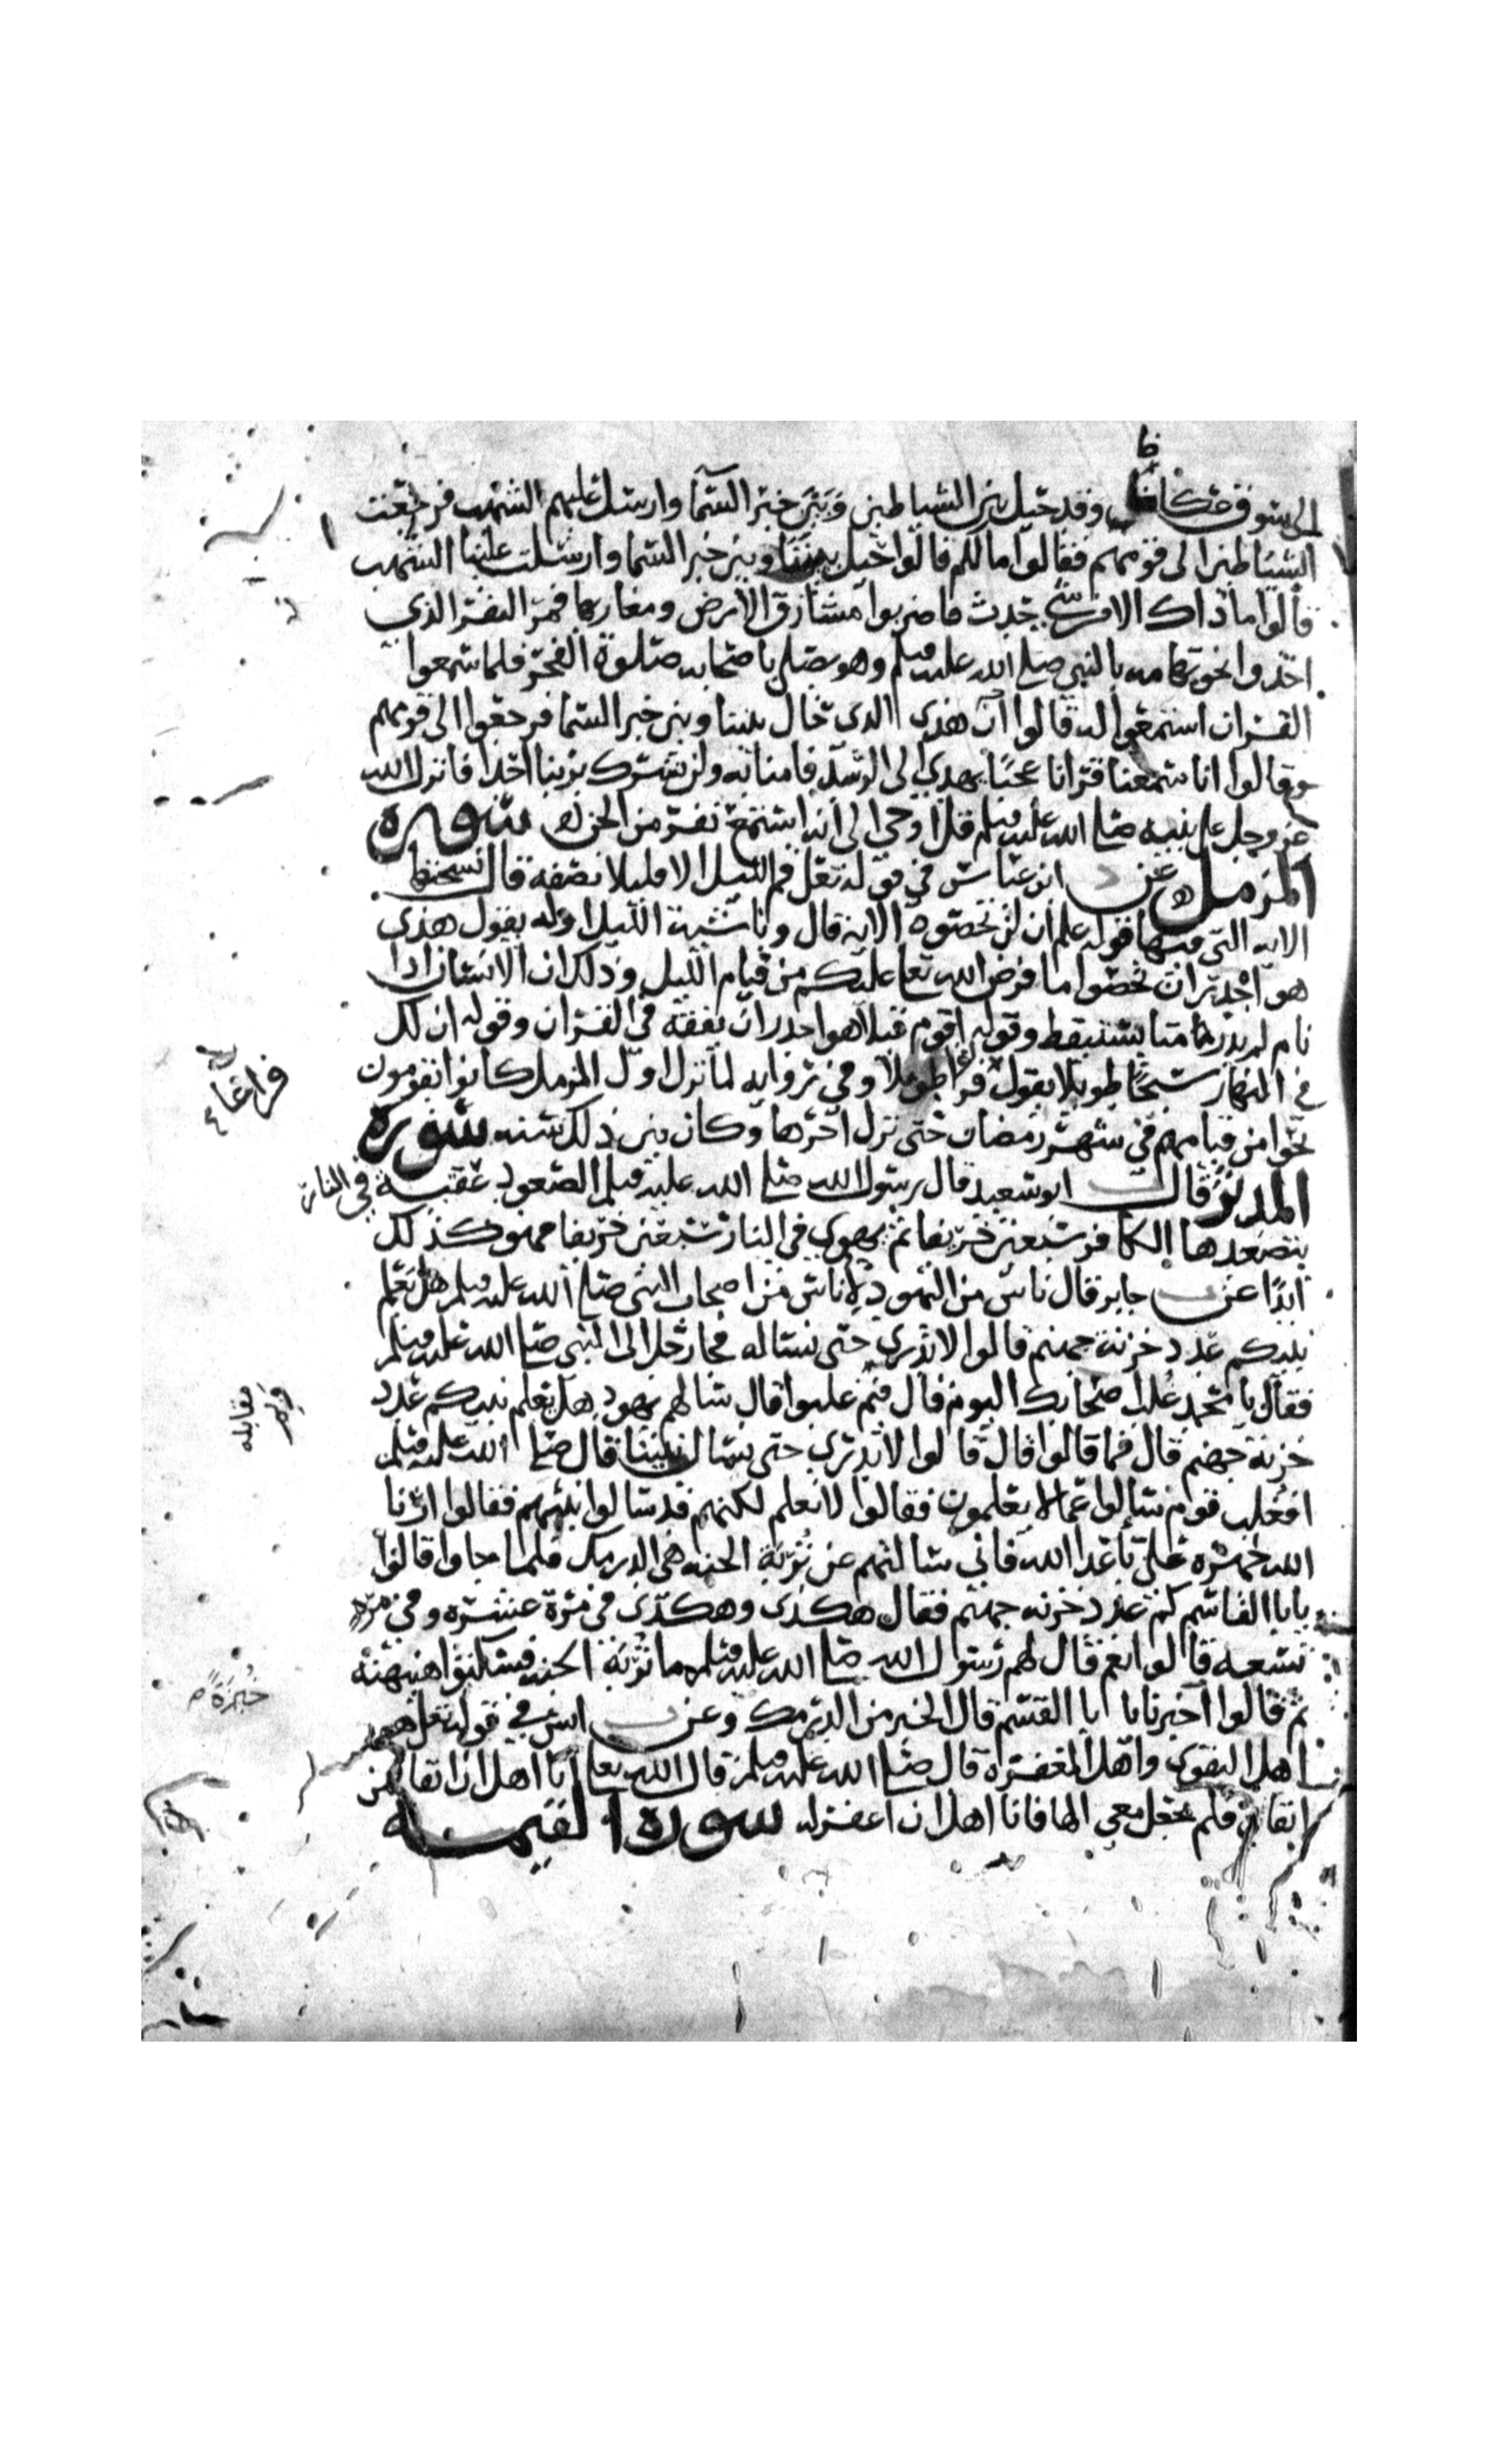 ظ
الى سوق عكاظ وقد حيل بين الشياطين وبين خبر السما وارسل عليهم الشهب فرجعت
الشياطين الى قومهم فقالوا مالكم قالوا حيل بيننا وبين خبر السما وارسلت علينا الشهب
قالوا ما ذاك الا من شي حدث فاضربوا مشارق الارض ومغاربها فمر النفر الذي
اخذوا نحو تهامه بالنبي صلى الله عليه وسلم وهو يصلي باصحابه صلوة الفجر فلما سمعوا
القران استمعوا له قالوا ان هذى الذى حال بيننا وبين خبر السما فرجعوا الى قومهم
وقالوا انا سمعنا قرانا عجبا يهدي الى الرشد فامنا به ولن نشرك بربنا احدا فانزل الله
عز وجل على نبيه صلى الله عليه وسلم قل اوحي الي انه استمع نفر من الجن سوره
المزمل عن ابن عباس في قوله تعلى قم الليل الا قليلا نصفه قال نسختها
الايه التي فيها قوله علم ان لن تحصوه الايه قال وناشئة الليل اوله يقول هذى
هو اجدر ان تحصوا ما فرض الله تعا عليكم من قيام الليل وذلك ان الانسان اذا
نام لم يدر متا يستيقظ وقوله اقوم قيلا هو اجدر ان يفقه في القران وقوله ان لك
في النهار سبحا طويلا يقول فراغا طويلا وفي روايه لما نزل اول المزمل كانوا يقومون
فراغا
نحوا من قيامهم في شهر رمضان حتى نزل اخرها وكان بين ذلك سنه سوره
المدثر قال ابو سعيد قال رسول الله صلى الله عليه وسلم الصعود عقبة في النار
يتصعدها الكافر سبعين خريفا ثم يهوي في النار سبعين خريفا فهو كذلك
ابدا عن جابر قال ناس من اليهود لاناس من اصحاب النبي صلى الله عليه وسلم هل يعلم
نبيكم عدد خزنة جهنم قالوا لا ندري حتى نساله فجا رجل الى النبي صلى الله عليه وسلم
فقال يا محمد غلب اصحابك اليوم قال فبم غلبوا قال سالهم يهود هل يعلم نبيكم عدد
مقابله
خزنة جهنم قال فما قالوا قال قالوا لا ندري حتى نسال نبينا قال صلى الله عليه وسلم
افغلب قوم سالوا عما لا يعلمون فقالوا لا نعلم لكنهم قد سالوا نبيهم فقالوا ارنا
الله جهره علي باعدا الله فاني سائلهم عن تربة الجنه هي الدرمك فلما جاوا قالوا
يابا القاسم كم عدد خزنه جهنم فقال هكذى وهكذى في مرة عشره وفي مره
تسعه قالوا نعم قال لهم رسول الله صلى الله عليه وسلم ما تربة الجنه فسكتوا هنيهة
ثم قالوا اخبرنا يا ابا القسم قال الخبز من الدرمك وعن انس في قوله تعلى هو
خبزة
اهل التقوى واهل المغفرة قال صلى الله عليه وسلم قال الله تعا انا اهل ان اتقا فمن
اتقاني فلم يجعل معي الها فانا اهل ان اغفر له سورة القيمه